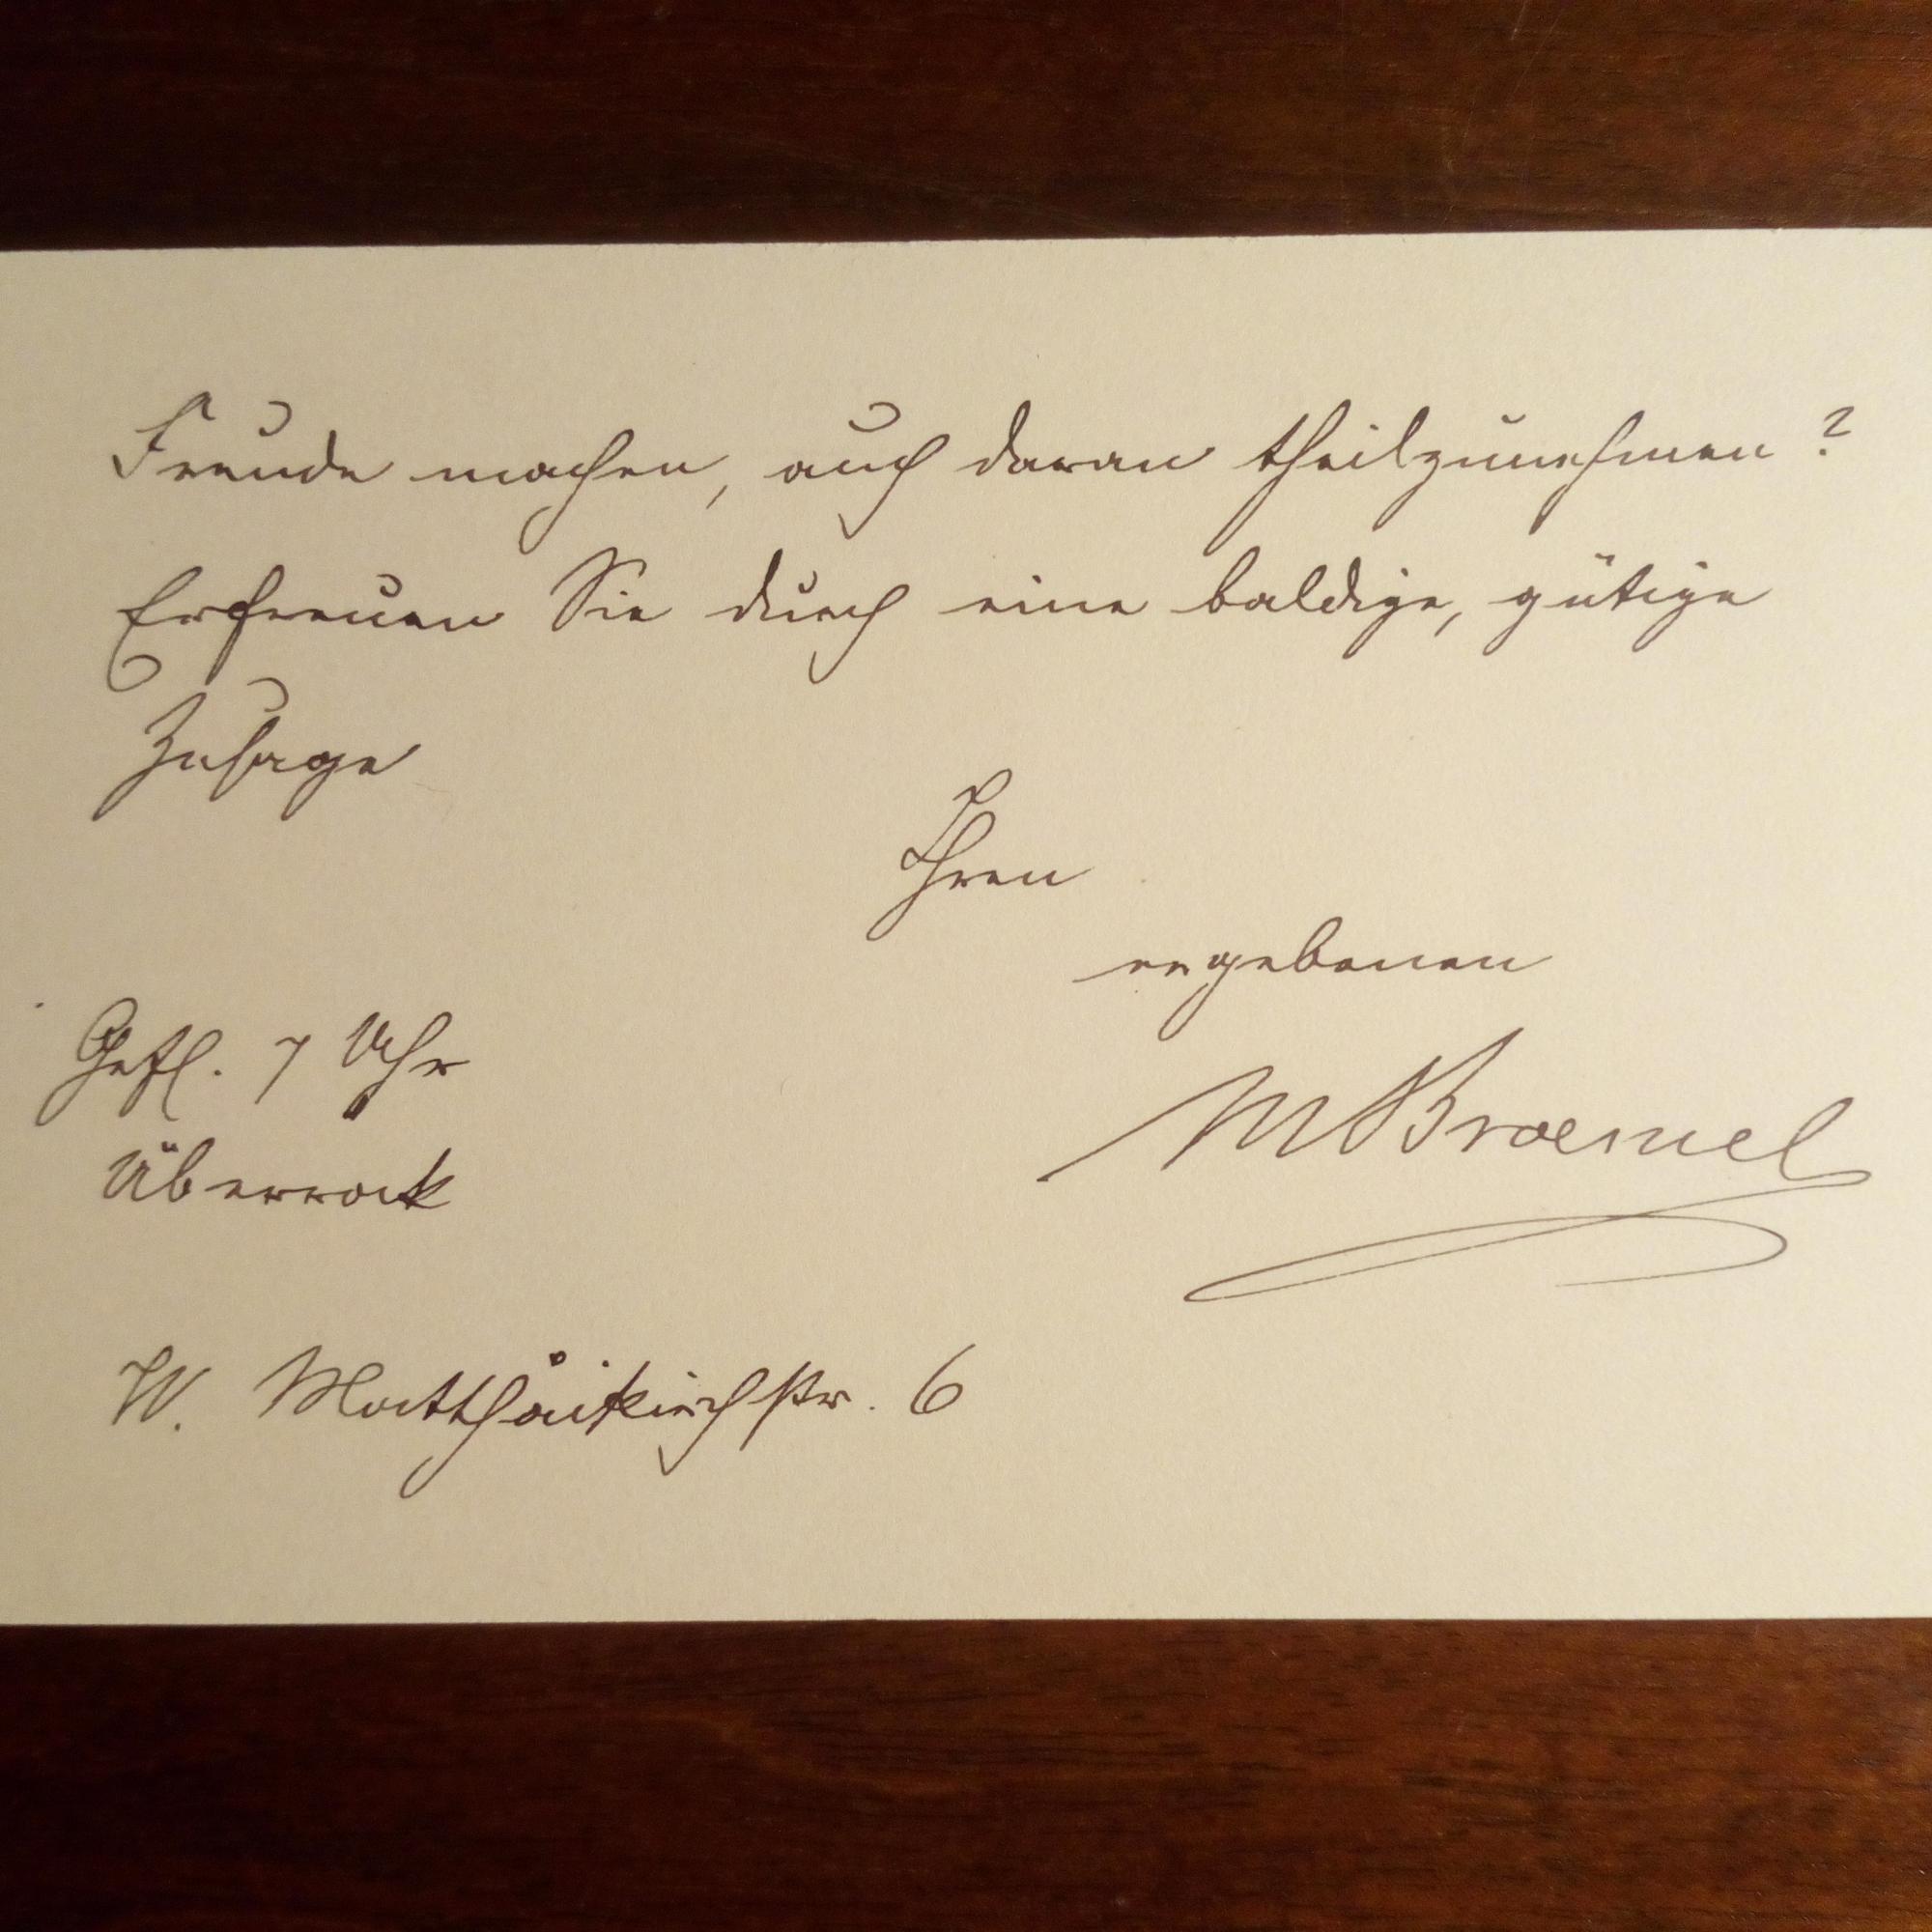 Freude machen, auch daran theilzunehmen?
Erfreuen Sie durch eine baldige, gütige
Zusage
Ihren
ergebenen
Gefl. 7 Uhr
MBroemel
Überrock
W. Matthäikirchstr. 6